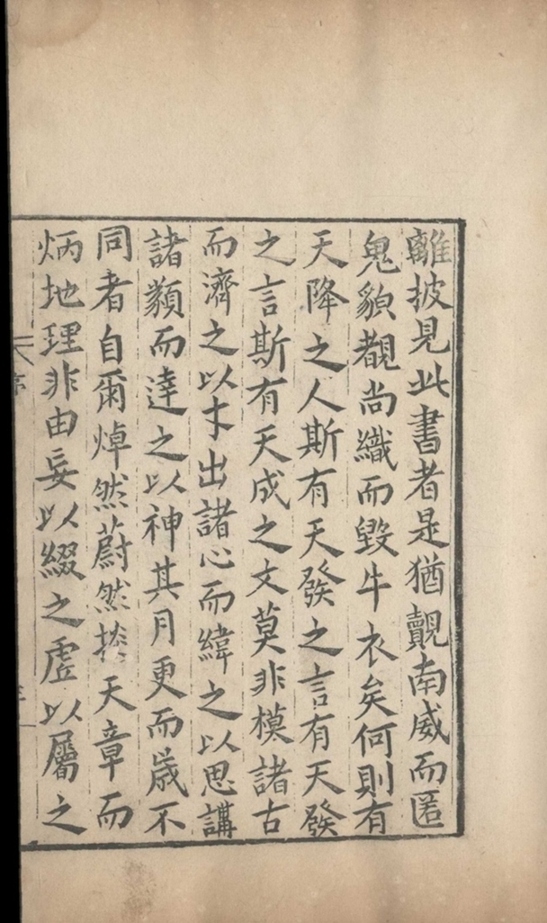 離披見此書者是猶覿南威而匿
鬼貌覩尚織而毀牛衣矣何則有
天降之人斯有天發之言有天發
之言斯有天成之文莫非模諸古
而濟之以才出諸心而緯之以思講
諸纇而達之以神其月更而歲不
同者自爾焯然蔚然掞天章而
炳地理非由妄以綴之虛以屬之